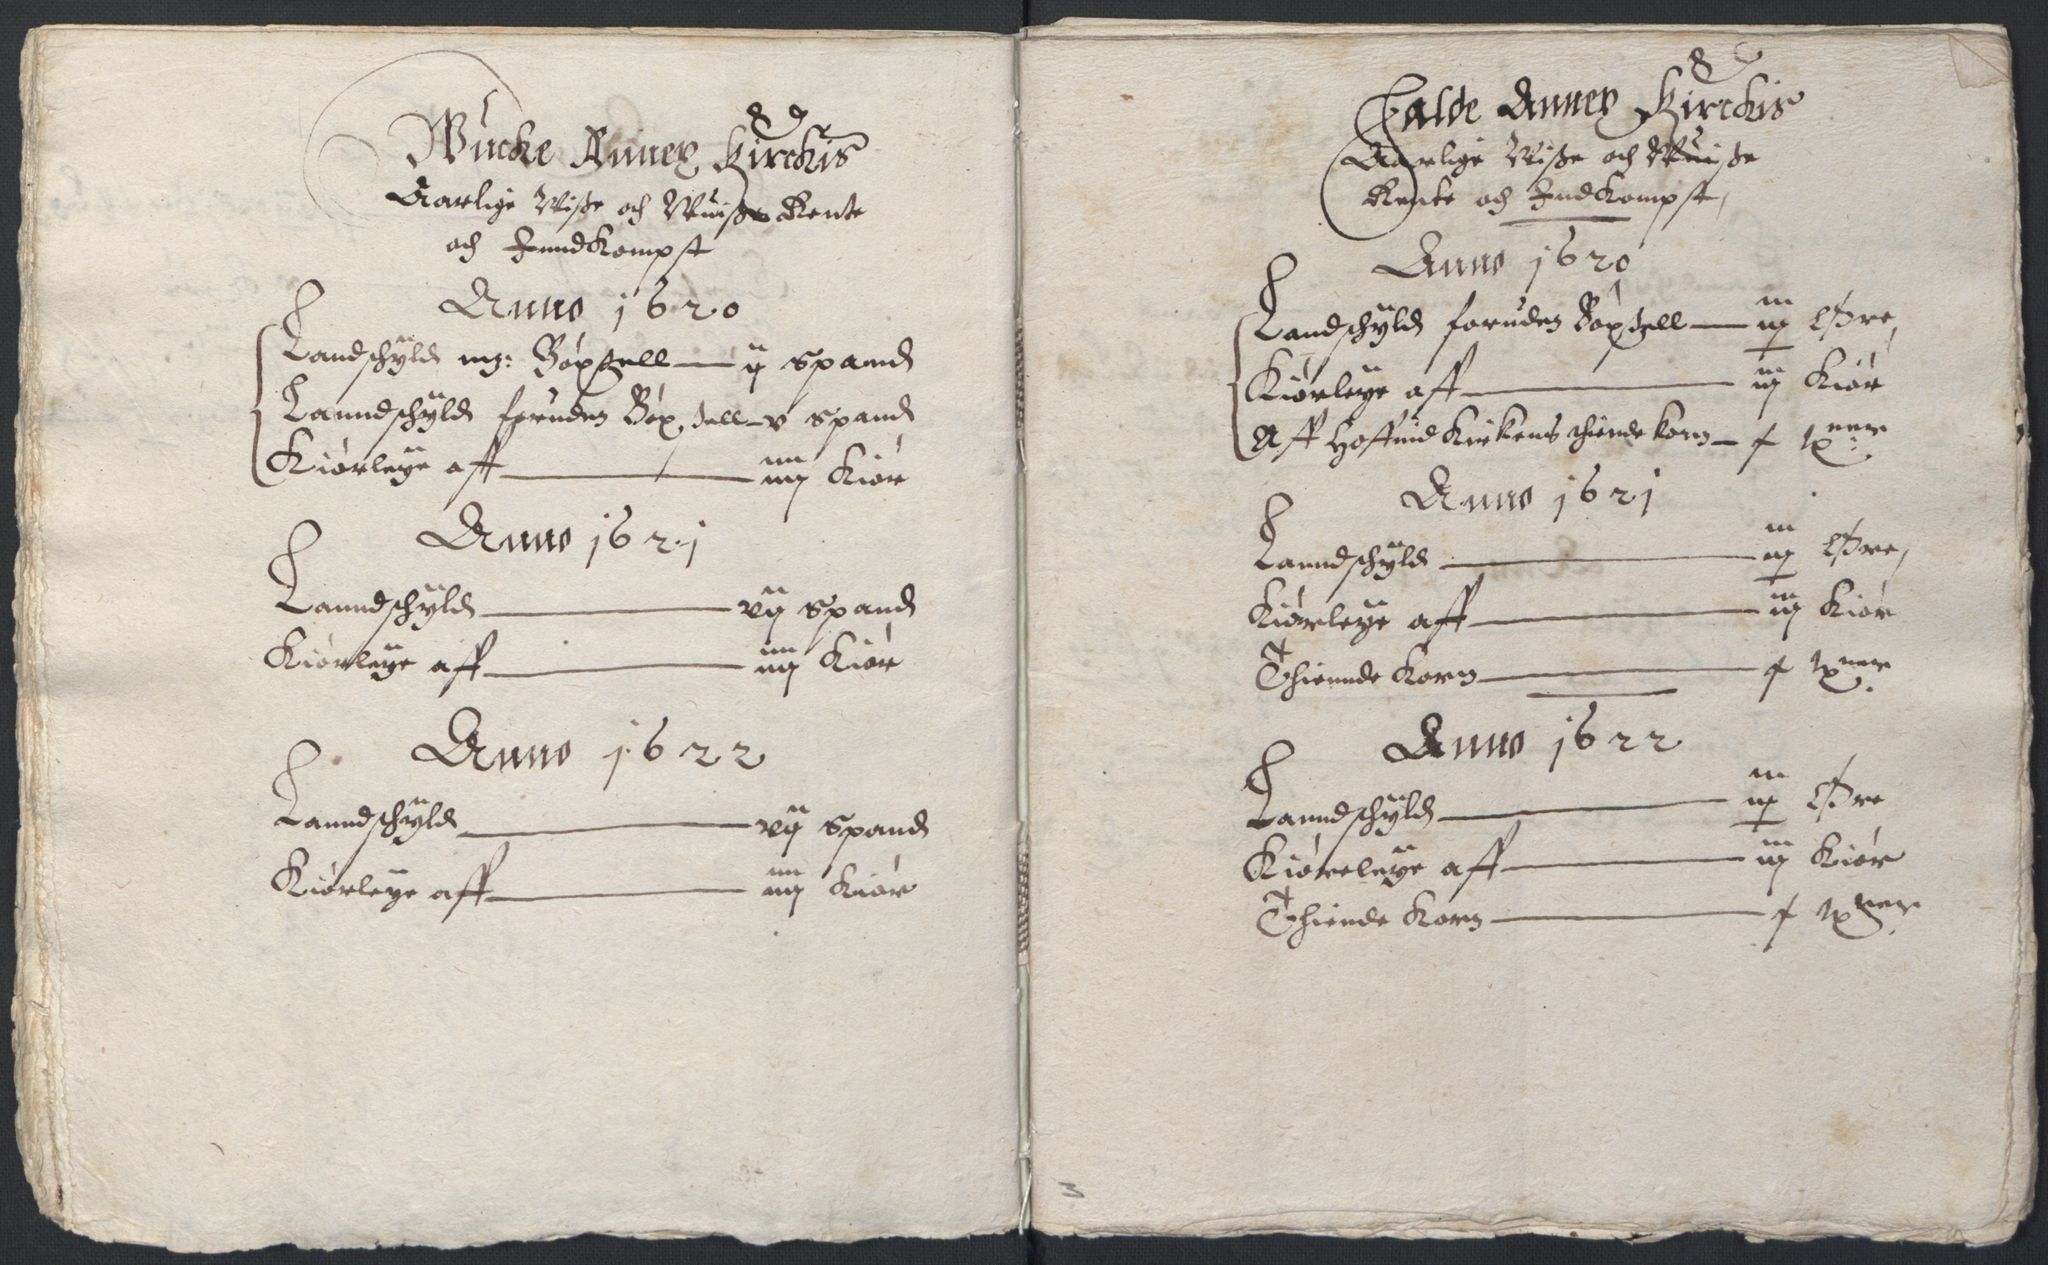 Wucke Annex Kirckis
Aarlige Wiße och Wuiße Rente
och Inndkompst
Anno 1620
Landschÿld mz: Böxsell — ij Spand
Lanndschÿld foruden Böxsell — v Spand
Kiörleÿe aff — iiij Kiör
Anno 1621
Lanndschÿld — vij Spand
Kiörleÿe aff — iiij Kiör
Anno 1622
Lanndschÿld — vij Spand
Kiörleÿe aff — iiij Kiör
Calde Annex Kirckis
Aarlige Wiße och Wuiße
Rente och Indkompst,
Anno 1620
Landschÿld foruden Böxsell — iij Øre,
Kiörleÿe aff — iij Kiör
Aff Hoffuid Kirkens thiende korn —
Anno 1621
Lanndschÿld — iij Øre,
Kiörleÿe aff — iij Kiör
Thiennde Korn —
Anno 1622
Lanndschÿld — iij Øre
Kiöreleÿe aff — iij Kiör
Thiende Korn —
3